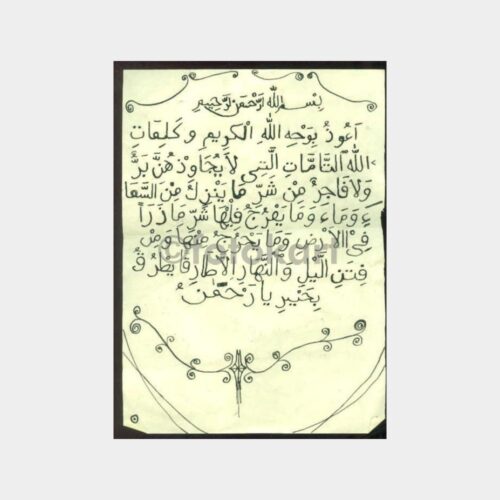 بِسْمِ اللهِ الرَّحْمٰنِ الرَّحِيمِ
اَعُوذُ بِوَجْهِ اللهِ الْكَرِيمِ وَ كَلِمَاتِ
اللهِ التَّامَّاتِ الَّتِى لَا يُجَاوِزُهُنَّ بَرٌّ
وَلَا فَاجِرٌ مِنْ شَرِّ مَا يَنْزِلُ مِنَ السَّمَا
ءِ وَمَاءَ وَمَا يَعْرُجُ فِيْهَا شَرِّ مَا ذَرَأَ
فِى الْاَرْضِ وَمَا يَخْرُجُ مِنْهَا وَمِنْ
فِتَنِ الَّيْلِ وَالنَّهَارِ اِلَّا طَارِقًا يَطْرُقُ
بِخَيْرٍ يَا رَحْمٰنُ
©fotokart